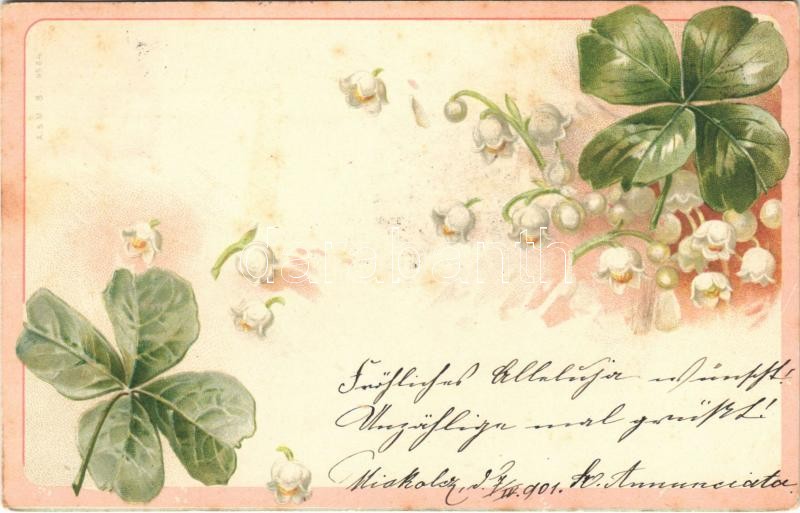 A.S.M. 8 9564
darabanth
Fröhliches Alleluja wünscht!
Unzählige mal grüßt!
Miskolcz, d. 7/IV. 901. Sr. Annunciata.